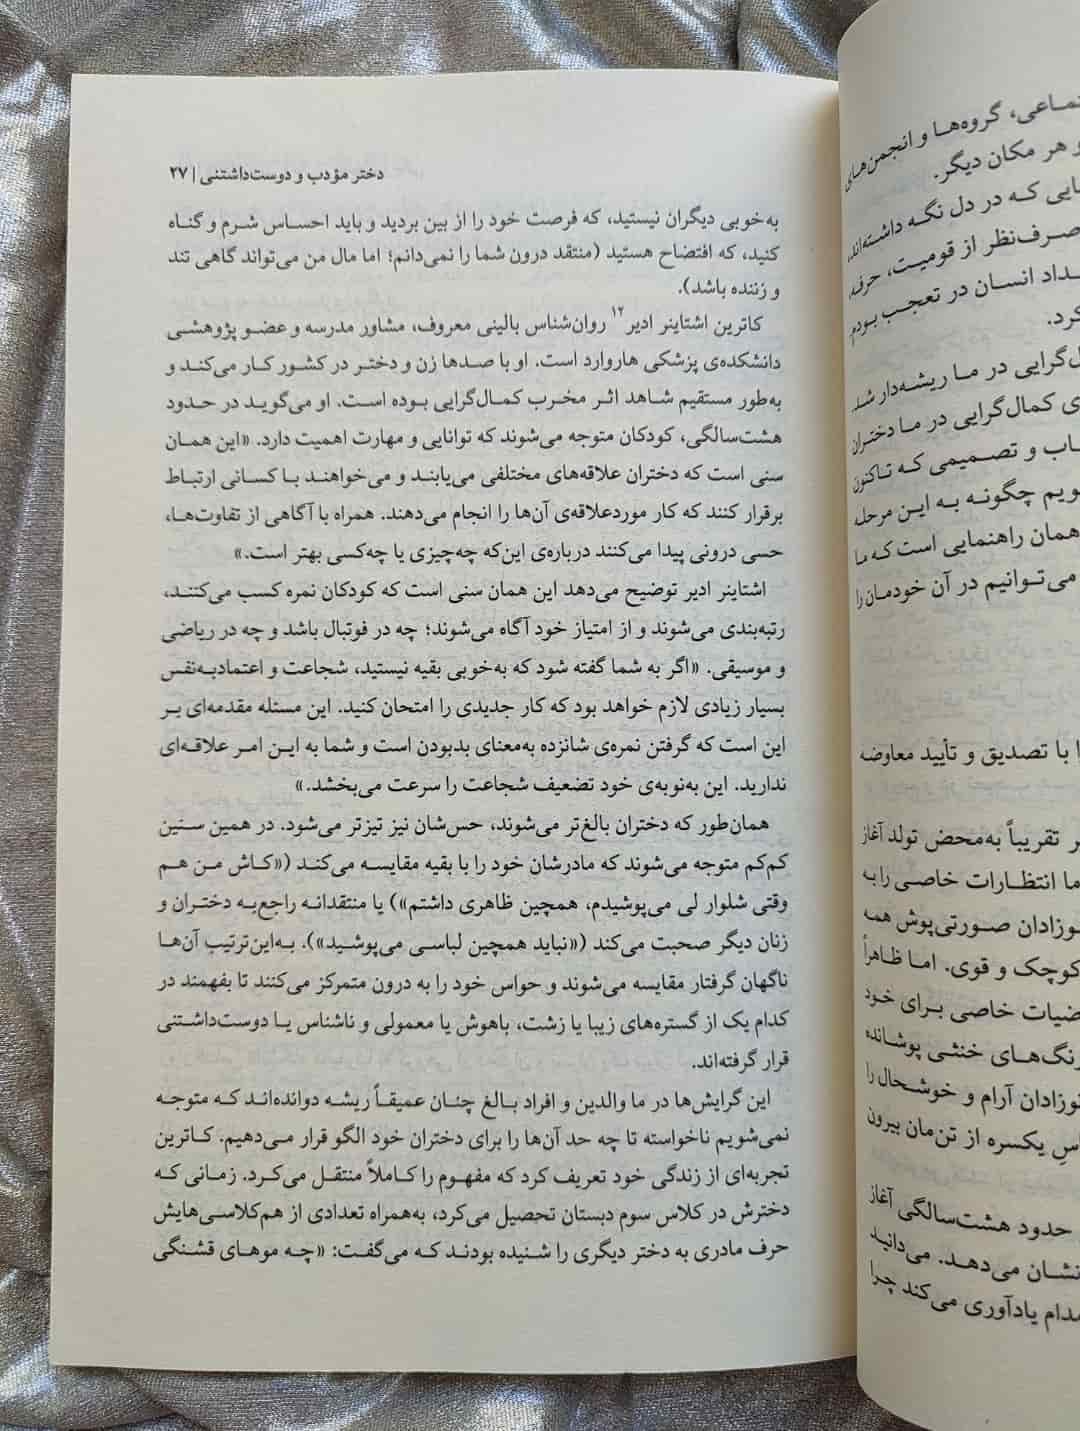 دختر مؤدب و دوست‌داشتنی | ۲۷
به‌خوبی دیگران نیستید، که فرصت خود را از بین بردید و باید احساس شرم و گناه
کنید، که افتضاح هستید (منتقد درون شما را نمی‌دانم؛ اما مال من می‌تواند گاهی تند
و زننده باشد).
کاترین اشتاینر ادیر۱۲ روان‌شناس بالینی معروف، مشاور مدرسه و عضو پژوهشی
دانشکده‌ی پزشکی هاروارد است. او با صدها زن و دختر در کشور کار می‌کند و
به‌طور مستقیم شاهد اثر مخرب کمال‌گرایی بوده است. او می‌گوید در حدود
هشت‌سالگی، کودکان متوجه می‌شوند که توانایی و مهارت اهمیت دارد. «این همان
سنی است که دختران علاقه‌های مختلفی می‌یابند و می‌خواهند با کسانی ارتباط
برقرار کنند که کار موردعلاقه‌ی آن‌ها را انجام می‌دهند. همراه با آگاهی از تفاوت‌ها،
حسی درونی پیدا می‌کنند درباره‌ی این‌که چه‌چیزی یا چه‌کسی بهتر است.»
اشتاینر ادیر توضیح می‌دهد این همان سنی است که کودکان نمره کسب می‌کنند،
رتبه‌بندی می‌شوند و از امتیاز خود آگاه می‌شوند؛ چه در فوتبال باشد و چه در ریاضی
و موسیقی. «اگر به شما گفته شود که به‌خوبی بقیه نیستید، شجاعت و اعتمادبه‌نفس
بسیار زیادی لازم خواهد بود که کار جدیدی را امتحان کنید. این مسئله مقدمه‌ای بر
این است که گرفتن نمره‌ی شانزده به‌معنای بدبودن است و شما به این امر علاقه‌ای
ندارید. این به‌نوبه‌ی خود تضعیف شجاعت را سرعت می‌بخشد.»
همان‌طور که دختران بالغ‌تر می‌شوند، حس‌شان نیز تیزتر می‌شود. در همین سنین
کم‌کم متوجه می‌شوند که مادرشان خود را با بقیه مقایسه می‌کند («کاش من هم
وقتی شلوار لی می‌پوشیدم، همچین ظاهری داشتم») یا منتقدانه راجع‌به دختران و
زنان دیگر صحبت می‌کند («نباید همچین لباسی می‌پوشید»). به‌این‌ترتیب آن‌ها
ناگهان گرفتار مقایسه می‌شوند و حواس خود را به درون متمرکز می‌کنند تا بفهمند در
کدام یک از گستره‌های زیبا یا زشت، باهوش یا معمولی و ناشناس یا دوست‌داشتنی
قرار گرفته‌اند.
این گرایش‌ها در ما والدین و افراد بالغ چنان عمیقاً ریشه دوانده‌اند که متوجه
نمی‌شویم ناخواسته تا چه حد آن‌ها را برای دختران خود الگو قرار می‌دهیم. کاترین
تجربه‌ای از زندگی خود تعریف کرد که مفهوم را کاملاً منتقل می‌کرد. زمانی که
دخترش در کلاس سوم دبستان تحصیل می‌کرد، به‌همراه تعدادی از هم‌کلاسی‌هایش
حرف مادری به دختر دیگری را شنیده بودند که می‌گفت: «چه موهای قشنگی
گروه‌ها و انجمن‌های
و هر مکان دیگر.
که در دل نگه داشته‌اند،
صرف‌نظر از قومیت، حرفه،
انسان در تعجب بودم
کرد.
در ما ریشه‌دار شد.
کمال‌گرایی در ما دختران
و تصمیمی که تاکنون
چگونه به این مرحله
همان راهنمایی است که ما
می‌توانیم در آن خودمان را
با تصدیق و تأیید معاوضه
تقریباً به‌محض تولد آغاز
ما انتظارات خاصی را به
صورتی‌پوش همه
کوچک و قوی. اما ظاهراً
خاصی برای خود
خنثی پوشانده
آرام و خوشحال را
یکسره از تن‌مان بیرون
حدود هشت‌سالگی آغاز
نشان می‌دهد. می‌دانید
یادآوری می‌کند چرا